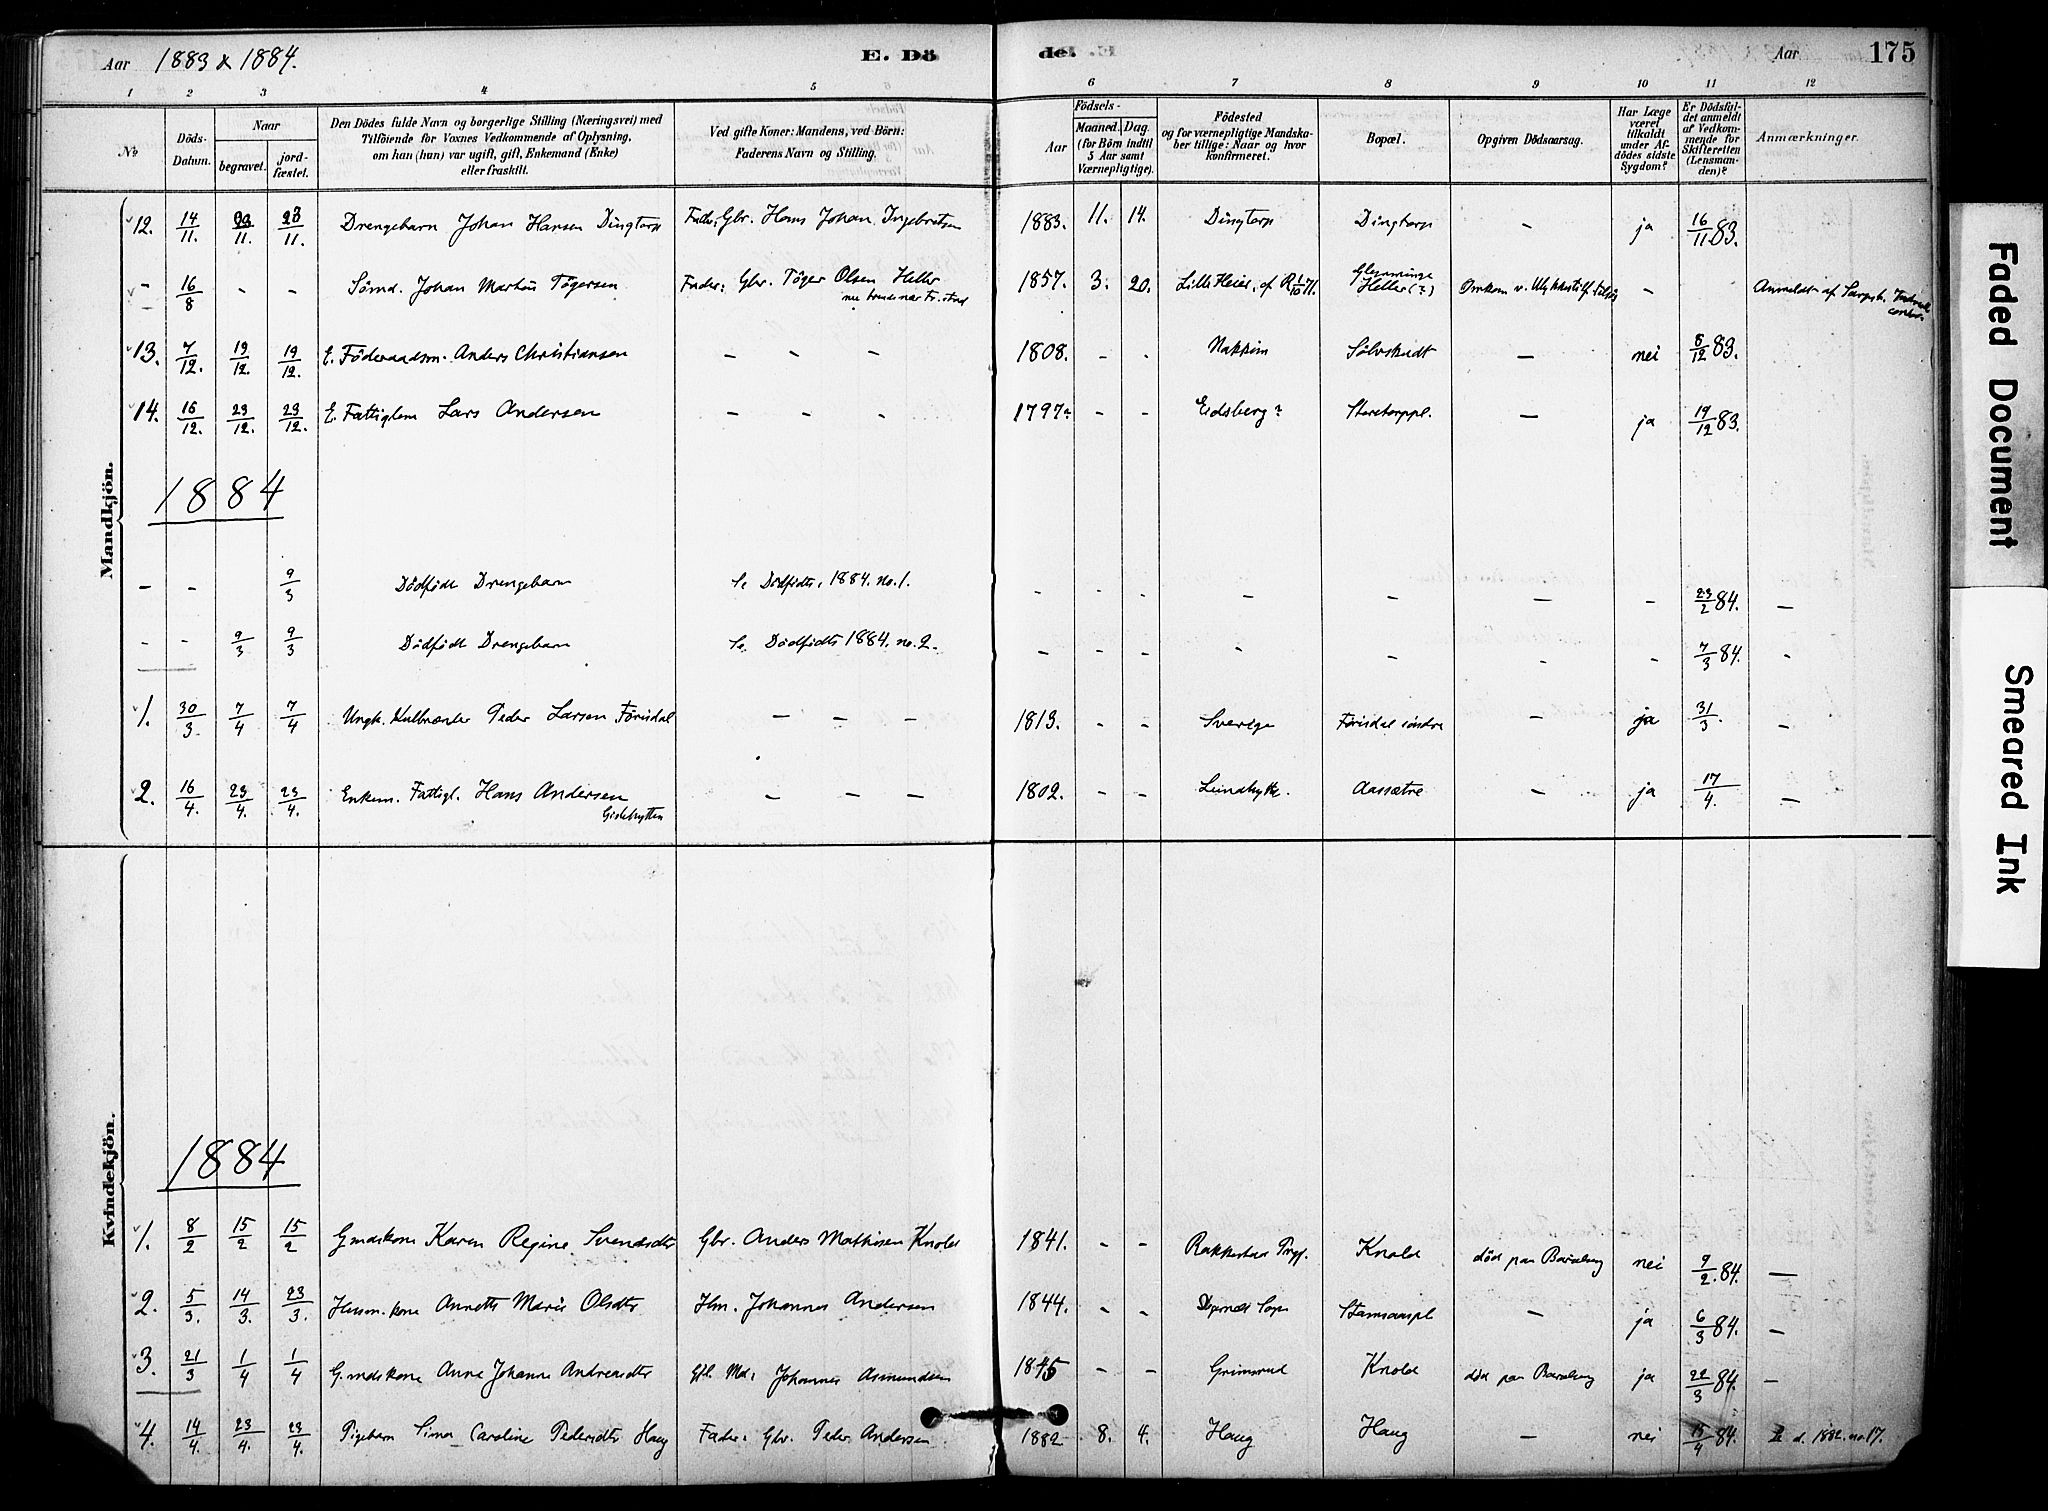 Aar 1883 & 1884. E. Dö de. Aar 175
1 2 3 4 5 6 7 8 9 10 11 12
No
Döds-Datum.
Naar
begravet.
jord-fæstet.
Den Dödes fulde Navn og borgerlige Stilling (Næringsvei) med
Tilföiende for Voxnes Vedkommende af Oplysning,
om han (hun) var ugift, gift, Enkemand (Enke)
eller fraskilt.
Ved gifte Koner: Mandens, ved Börn:
Faderens Navn og Stilling.
Födsels-
Aar
Maaned. Dag.
(for Börn indtil
5 Aar samt
Værnepligtige).
Födested
og for værnepligtige Mandska-
ber tillige: Naar og hvor
konfirmeret.
Bopæl.
Opgiven Dödsaarsag.
Har Læge
været
tilkaldt
under Af-
dödes sidste
Sygdom?
Er Dödsfal-
det anmeldt
af Vedkom-
mende for
Skifteretten
(Lensman-
den)?
Anmærkninger.
Mandkjön.
12. 14/11. 23/11. 23/11. Drengebarn Johan Hansen Dingtorp Fader: Gbr. Hans Johan Ingebretsen 1883. 11. 14. Dingtorp Dingtorp - ja 16/11 83.
- 16/8 - - Sömd. Johan Martin Tögersen Fader: Gbr. Töger Olsen Heller 1857. 3. 20. Lille Heier, Glemminge Heller (?) Omkom v. Ulykkestilf. - Anmeldt af
13. 7/12. 19/12. 19/12. E. Föderaadsm. Anders Christiansen - - - 1808. - - Nakkim Sölvskudt - nei 8/12 83.
14. 16/12. 23/12. 23/12. E. Fattiglem Lars Andersen - - - 1797? - - Eidsberg? Storetorppl. - ja 19/12 83.
1884
- - 9/3 Dödfödt Drengebarn Se Dödfödte, 1884. no. 1. - - - - - - - 23/2 84. -
- - 9/3 9/3 Dödfödt Drengebarn Se Dödfödte 1884. no. 2. - - - - - - - 7/3 84. -
1. 30/3. 7/4 7/4 Ungk. Kulbrænder Peder Larsen Förisdal - - - 1813. - - Sverige Förisdal söndre - ja 31/3. -
2. 16/4. 23/4. 23/4. Enkem. Fattigl. Hans Andersen - - - 1802. - - Lundhytte. Aassætre - ja 17/4. -
Gislehytten
Kvindekjön.
1884
1. 8/2 15/2 15/2 Gmdskone Karen Regine Svendsdtr Gbr. Anders Mathisen Knold 1841. - - Rakkestad Prgj. Knold död paa Barselseng nei 9/2. 84. -
2. 5/3. 14/3. 23/3. Husm. kone Annette Marie Olsdtr Hm. Johannes Andersen 1844. - - Stamsaaspl - ja 6/3 84. -
3. 21/3 1/4 1/4 Gmdskone Anne Johanne Andreasdtr Md: Johannes Asmundsen 1845 - - Grimsrud Knold död paa Barselseng ja 22/3 84. -
4. 14/4. 23/4. 23/4. Pigebarn Sima Caroline Pedersdtr Haug Fader: Gbr. Peder Andersen 1882 8. 4. Haug Haug - nei 15/4 84. d. 1882. no 17.
Faded Document
Smeared Ink